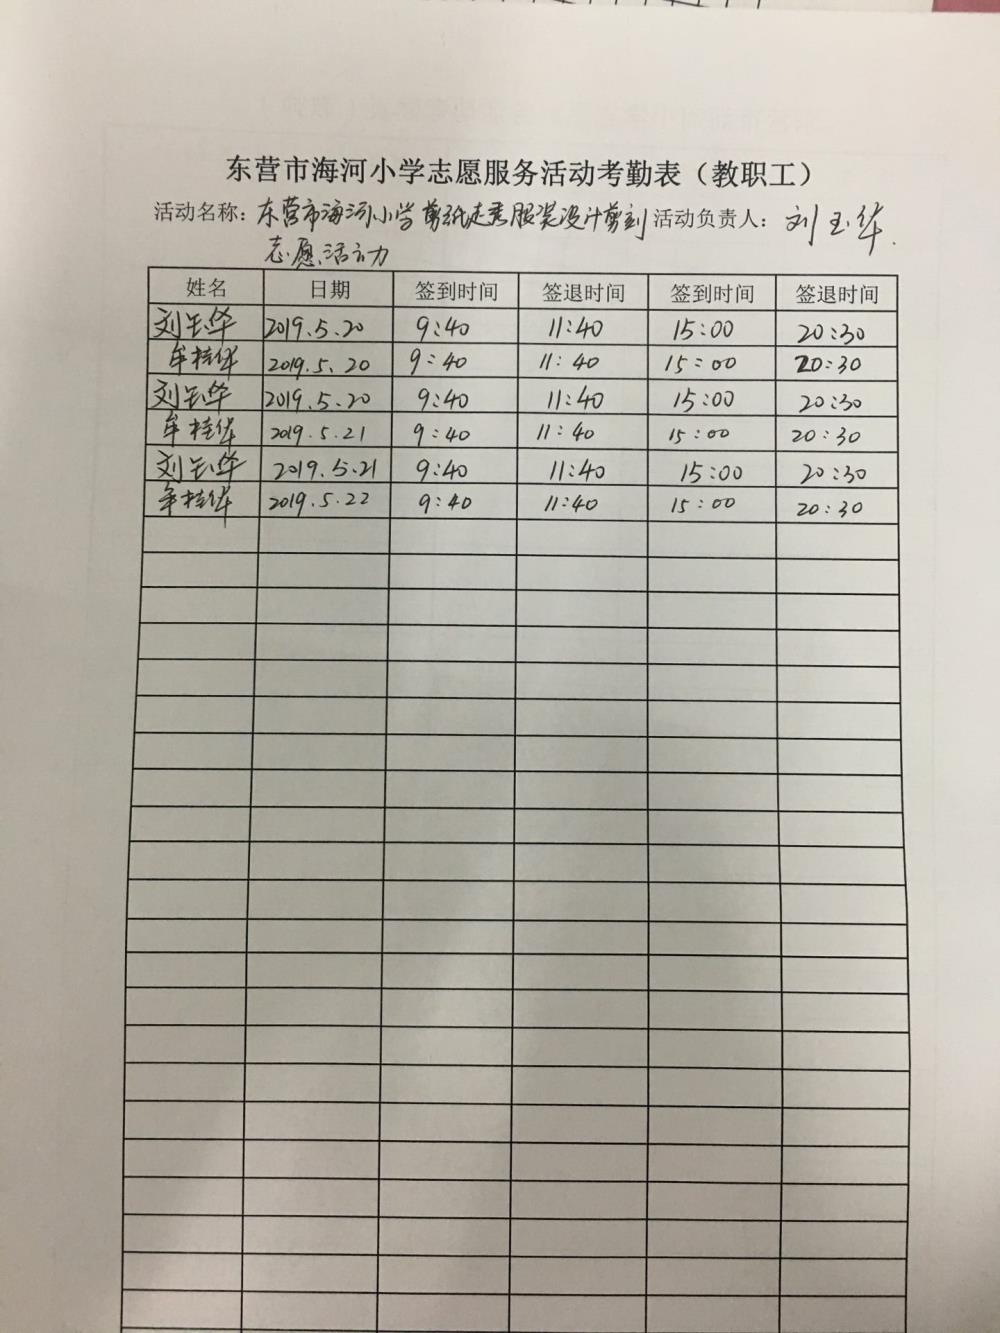 东营市海河小学志愿服务活动考勤表（教职工）
活动名称：东营市海河小学剪纸走秀服装设计剪刻 活动负责人：刘玉华
志愿活动
姓名 日期 签到时间 签退时间 签到时间 签退时间
刘玉华 2019.5.20 9:40 11:40 15:00 20:30
牟桂华 2019.5.20 9:40 11:40 15:00 20:30
刘玉华 2019.5.20 9:40 11:40 15:00 20:30
牟桂华 2019.5.21 9:40 11:40 15:00 20:30
刘玉华 2019.5.21 9:40 11:40 15:00 20:30
牟桂华 2019.5.22 9:40 11:40 15:00 20:30